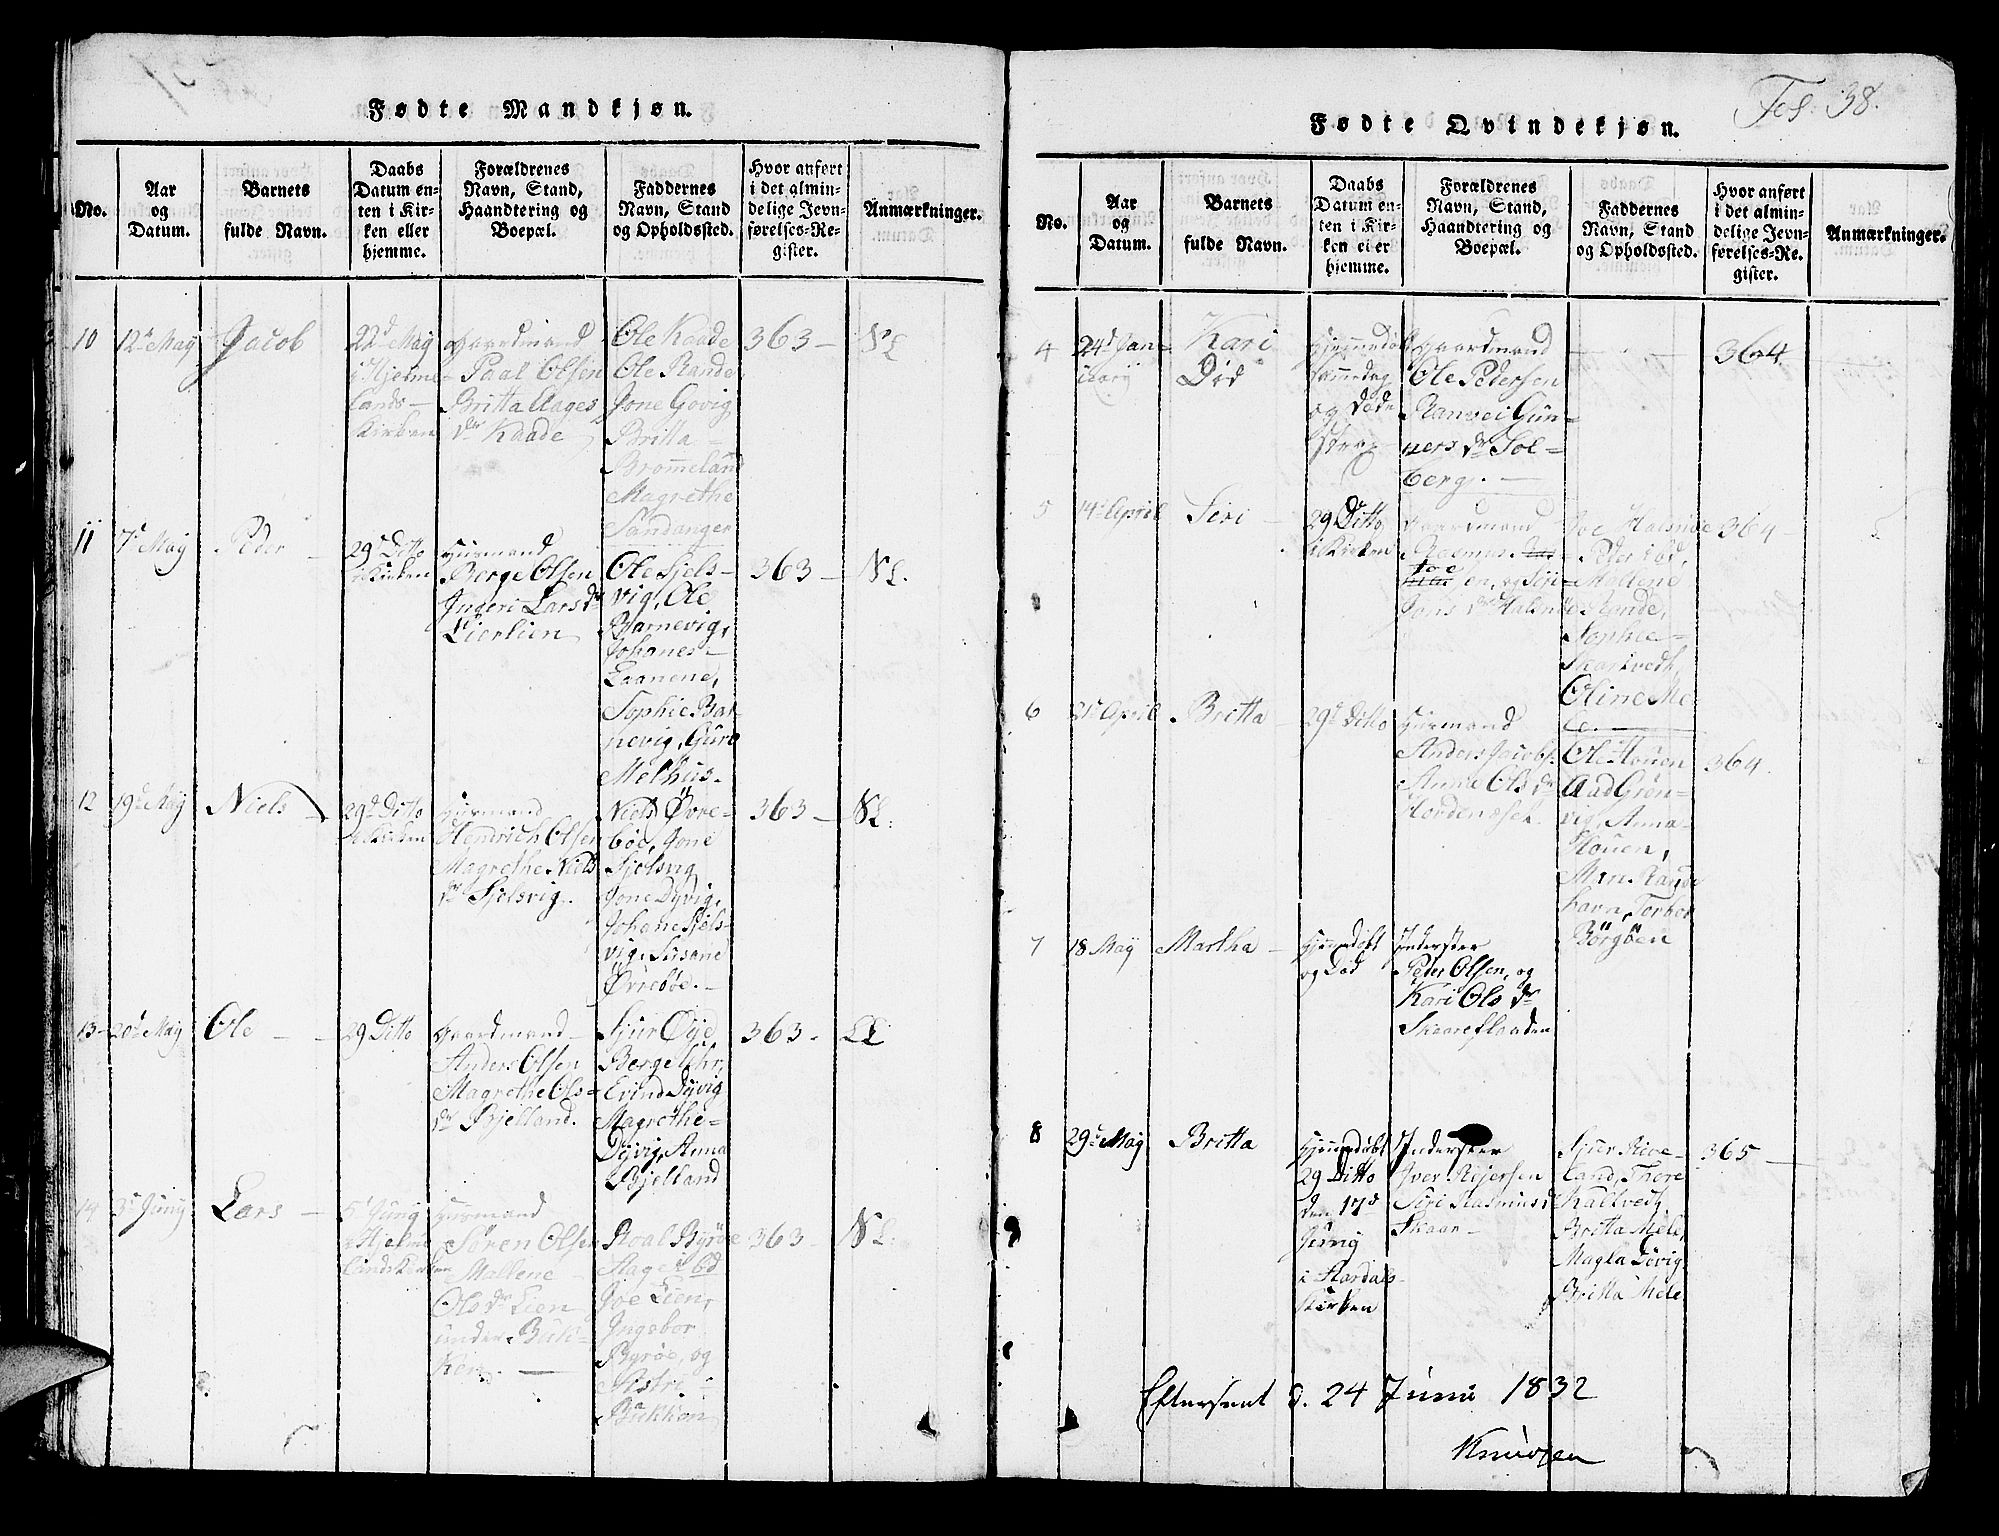 Fødte Mandkjøn.
No.
Aar
og
Datum.
Barnets
fulde Navn.
Daabs
Datum en-
ten i Kir-
ken eller
hjemme.
Forældrenes
Navn, Stand,
Haandtering og
Boepæl.
Faddernes
Navn, Stand
og Opholdssted.
Hvor anført
i det almin-
delige Jevn-
førelses-Re-
gister.
Anmærkninger.
10
12te May
Jacob
22d May
i Hjelme-
lands-
Kirken
Gaardmand
Paal Olsen
Britta Aages
dr Kaade
Ole Kaade
Ole Rande
Jone Govig
Britta
Brommeland
Magrethe
Sandanger
363
NL
11
7d May
Peder
29d Ditto
i Kirken
Huusmand
Berge Olsen
Ingeri Lars dr
Lierlien
Ole Fjels-
vig, Ole
Barnevig,
Johanes
Laanene,
Sophie Bar-
nevig, Guro
Melhus.
363
NL.
12
19d May
Niels
29d Ditto
i Kirken
Huusmand
Hendrich Olsen
Magrethe Niels
dr Fjelsvig.
Niels Øvre-
böe, Jone
Fjelsvig
Jone Dyvig,
Johane Fjels-
vig, Susane
Øvreböe.
363
NL.
13
20d May
Ole
29 Ditto
Gaardmand
Anders Olsen
Magrethe Ols-
dr Bjelland.
Sjur Øye
Berge
Evind Dyvig
Magrethe
Dyvig, Anna
Bjelland
363
LL
14
3d Juny
Lars
5d Juny
i Hjelme
landsKirken
Huusmand
Søren Olsen
Mallene
Ols dr Lien
under Buk-
ken.
Roal Byrøe
Aage ibd
Joe Lien,
Ingebor
Byrøe, og
Sistri
Bukken
363
NL.
Fol. 38.
Fødte Qvindekjøn.
No.
Aar
og
Datum.
Barnets
fulde Navn.
Daabs
Datum en-
ten i Kir-
ken eller
hjemme.
Forældrenes
Navn, Stand,
Haandtering og
Boepæl.
Faddernes
Navn, Stand
og Opholdssted.
Hvor anført
i det almin-
delige Jevn-
førelses-Re-
gister.
Anmærkninger.
4
24d Jan-
uarij
Kari
Död
Hjemmedöbt
samme dag
og døde
strax
Gaardmand
Ole Pedersen
Ranvei Gun-
ners dr Sol-
berg.
364
5
14d April
Siri
29 Ditto
i Kirken
Gaardmand
Rasmus
Joe
en, og Siji
Jons dr Halsnöe
Joe Halsnöe
Peder ibd,
Mallene
Rande,
Sophie
Skartvedt,
Oline Me-
le.
364
6
21d April
Britta
29d Ditto
Huusmand
Anders Jacobs.
Anne Ols dr
Nordenæset.
Ole Houen
Aad Grön-
vig, Anna
Houen,
Mari Rande
havn, Torbor
Börgöen
364
7
18 May
Martha
Hjemmdöbt
og död
Inderster
Peder Olsen, og
Kari Ols dr
Skaareflaaden
8
29d May
Britta
Hjemmdöbt
29 Ditto
den 17d
Juny
i Aardals
Kirken
Inderster
Iver Reiersen
Siri Rasmus d
Skaar
Sjur Rive-
land, Thore
Kaltvedt,
Britta Mele,
Magla Tövig
Britta Mele
365
Efterseet d. 24 Juni 1832
Knudsen